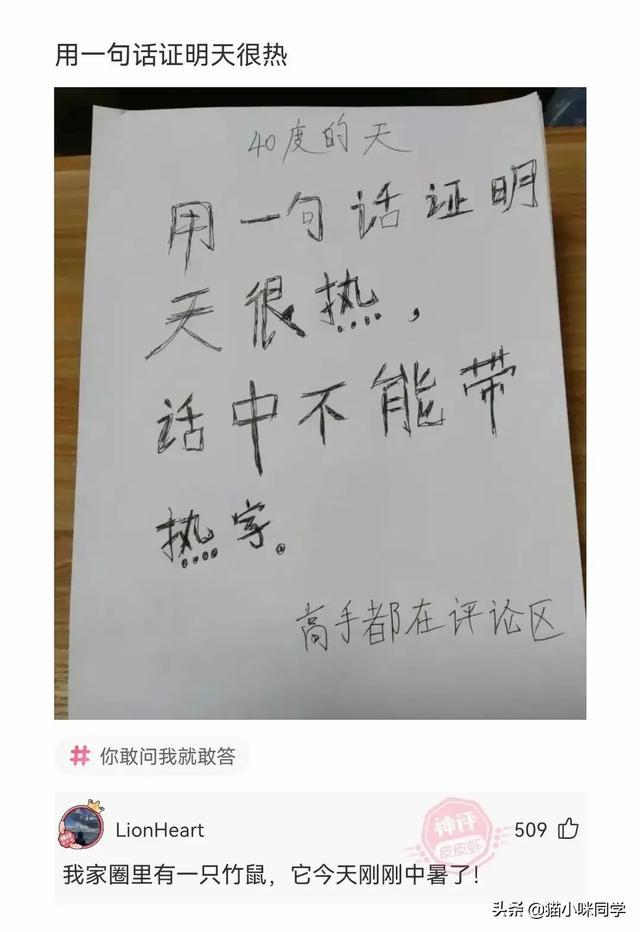 用一句话证明天很热
40度的天
用一句话证明
天很热，
话中不能带
热字。
高手都在评论区
# 你敢问我就敢答
LionHeart
神评
皮皮虾
509
我家圈里有一只竹鼠，它今天刚刚中暑了！
头条 @猫小咪同学